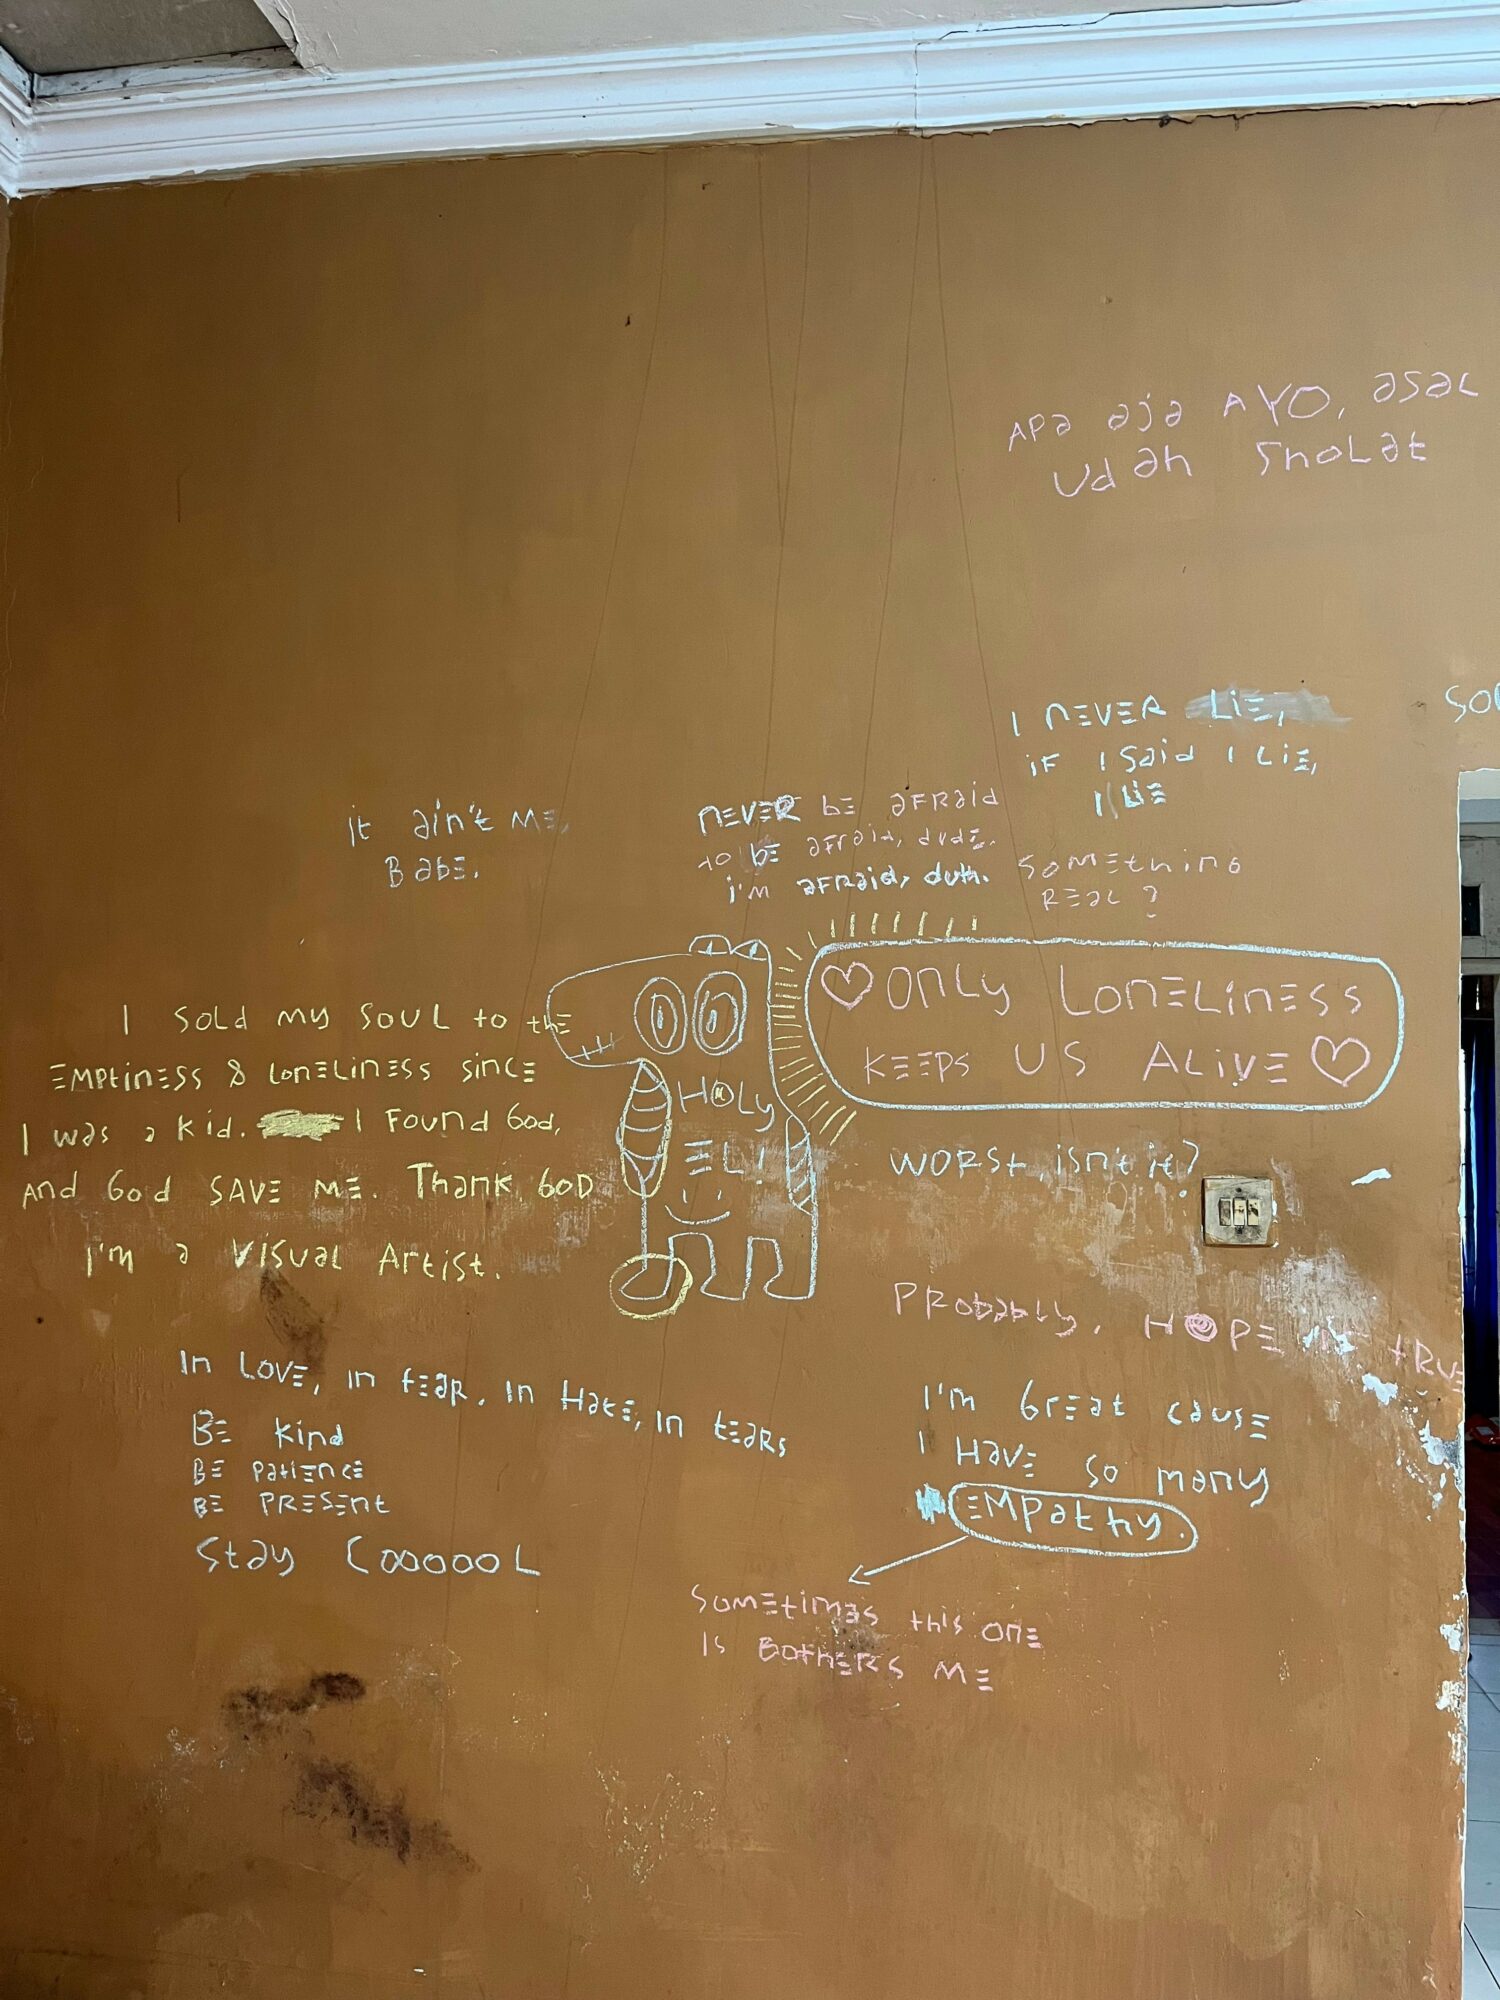 APA AJA AYO, ASAL
UDAH SHOLAT
I NEVER LIE,
IF I SAID I LIE,
I LIE
SO
IT AIN'T ME,
BABE.
NEVER BE AFRAID
TO BE AFRAID, DUDE.
I'M AFRAID, DUH.
SOMETHING
REAL?
♡ ONLY LONELINESS
KEEPS US ALIVE ♡
WORST, ISN'T IT?
HOLY
EL!
I SOLD MY SOUL TO THE
EMPTINESS & LONELINESS SINCE
I WAS A KID. I FOUND GOD,
AND GOD SAVE ME. THANK GOD
I'M A VISUAL ARTIST.
PROBABLY, HOPE TRUE
IN LOVE, IN FEAR, IN HATE, IN TEARS
BE KIND
BE PATIENCE
BE PRESENT
STAY COOOOOL
I'M GREAT CAUSE
I HAVE SO MANY
EMPATHY.
SOMETIMES THIS ONE
IS BOTHERS ME